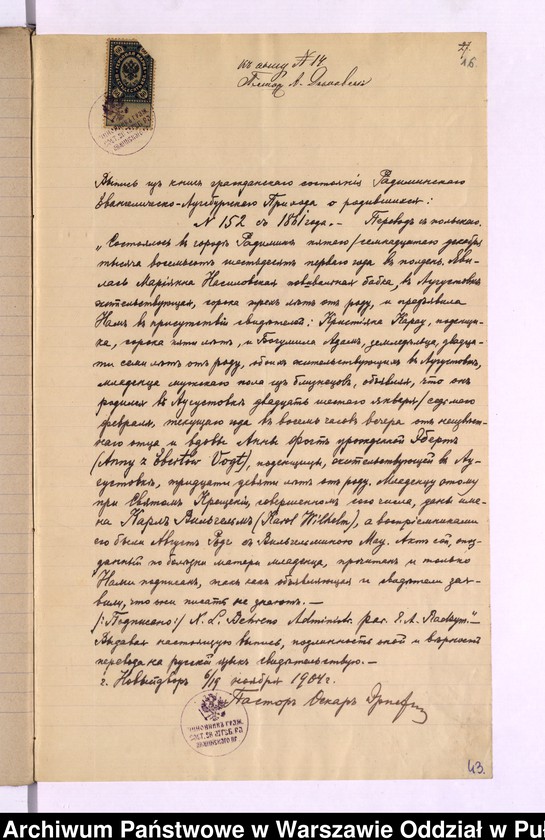 27.
къ акту № 14
Выпись изъ книгъ гражданскаго состоянія Радиминскаго
Евангелическо-Аугсбургскаго Прихода о родившихся:
№ 152 съ 1861 года. — Переводъ съ польскаго.
„Состоялось въ городѣ Радиминѣ пятаго/семнадцатаго декабря
тысяча восемьсотъ шестьдесятъ перваго года въ полдень. Яви-
лась Маріанна повивальная бабка, въ Аугустовкѣ
жительствующая, сорока трехъ лѣтъ отъ роду, и предъявила
Намъ въ присутствіи свидѣтелей: Христіана Карау, поденщи-
ка, сорока пяти лѣтъ, и Богумила Адамъ, земледѣльца, двадца-
ти семи лѣтъ отъ роду, обоихъ жительствующихъ въ Аугустовкѣ,
младенца мужскаго пола изъ близнецовъ, объявляя, что онъ
родился въ Аугустовкѣ двадцать шестого января/седьмого
февраля, текущаго года въ восемь часовъ вечера отъ неизвѣст-
наго отца и вдовы Анны Фогтъ урожденной Эбертъ
(Anny z Ebertów Vogt), поденщицы, жительствующей въ Ау-
густовкѣ, тридцати девяти лѣтъ отъ роду. Младенцу этому
при Святомъ Крещеніи, совершенномъ сего числа, даны име-
на Карлъ Вильгельмъ (Karol Wilhelm), а воспріемниками
его были Августъ съ Вильгельминою May. Актъ сей, опоз-
данный по болѣзни матери младенца, прочитанъ и только
Нами подписанъ, такъ какъ объявляющая и свидѣтели зая-
вили, что они писать не умѣютъ. —
/:Подписано:/ A. L. Behrens Administr. par. E. A. Radzym." —
Выдавая настоящую выпись, подлинность оной и вѣрность
перевода на русскій языкъ свидѣтельствую. —
г. Новыйдворъ 6/19 ноября 1904 г.
Пасторъ Оскаръ Эрнстъ
43.
Archiwum Państwowe w Warszawie Oddział w Pu